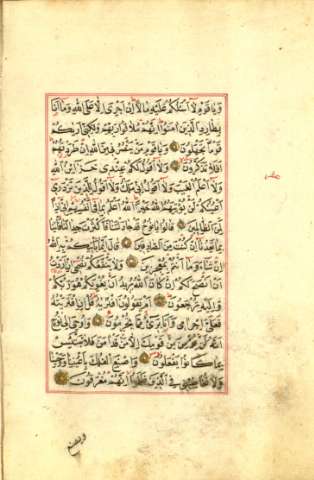 وَيَا قَوْمِ لَا أَسْئَلُكُمْ عَلَيْهِ مَالًا إِنْ أَجْرِىَ إِلَّا عَلَى اللهِ وَمَا أَنَا
بِطَارِدِ الَّذِينَ آمَنُوا إِنَّهُمْ مُلَاقُوا رَبِّهِمْ وَلَكِنِّي أَرَيكُمْ
قَوْمًا تَجْهَلُونَ وَيَا قَوْمِ مَنْ يَنْصُرُنِي مِنَ اللهِ إِنْ طَرَدْتُهُمْ
أَفَلَا تَذَكَّرُونَ وَلَا أَقُولُ لَكُمْ عِنْدِى خَزَائِنُ اللهِ
وَلَا أَعْلَمُ الْغَيْبَ وَلَا أَقُولُ إِنِّي مَلَكٌ وَلَا أَقُولُ لِلَّذِينَ تَزْدَرِى
أَعْيُنُكُمْ لَنْ يُؤْتِيَهُمُ اللهُ خَيْرًا اَللهُ أَعْلَمُ بِمَا فِي أَنْفُسِهِمْ إِنِّي إِذًا
لَمِنَ الظَّالِمِينَ قَالُوا يَا نُوحُ قَدْ جَادَلْتَنَا فَأَكْثَرْتَ جِدَالَنَا فَأْتِنَا
بِمَا تَعِدُنَا إِنْ كُنْتَ مِنَ الصَّادِقِينَ قَالَ إِنَّمَا يَأْتِيكُمْ بِهِ اللهُ
إِنْ شَاءَ وَمَا أَنْتُمْ بِمُعْجِزِينَ وَلَا يَنْفَعُكُمْ نُصْحِي إِنْ أَرَدْتُ
أَنْ أَنْصَحَ لَكُمْ إِنْ كَانَ اللهُ يُرِيدُ أَنْ يُغْوِيَكُمْ هُوَ رَبُّكُمْ
وَإِلَيْهِ تُرْجَعُونَ أَمْ يَقُولُونَ افْتَرَيهُ قُلْ إِنِ افْتَرَيْتُهُ
فَعَلَيَّ إِجْرَامِي وَأَنَا بَرِىءٌ مِمَّا تُجْرِمُونَ وَأُوحِيَ إِلَى نُوحٍ
أَنَّهُ لَنْ يُؤْمِنَ مِنْ قَوْمِكَ إِلَّا مَنْ قَدْ آمَنَ فَلَا تَبْتَئِسْ
بِمَا كَانُوا يَفْعَلُونَ وَاصْنَعِ الْفُلْكَ بِأَعْيُنِنَا وَوَحْيِنَا
وَلَا تُخَاطِبْنِي فِي الَّذِينَ ظَلَمُوا إِنَّهُمْ مُغْرَقُونَ
ويصنع